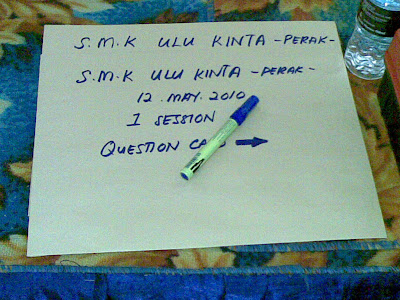 S.M.K ULU KINTA -PERAK-
S.M.K ULU KINTA -PERAK-
12.MAY.2010
1 SESSION
QUESTION →